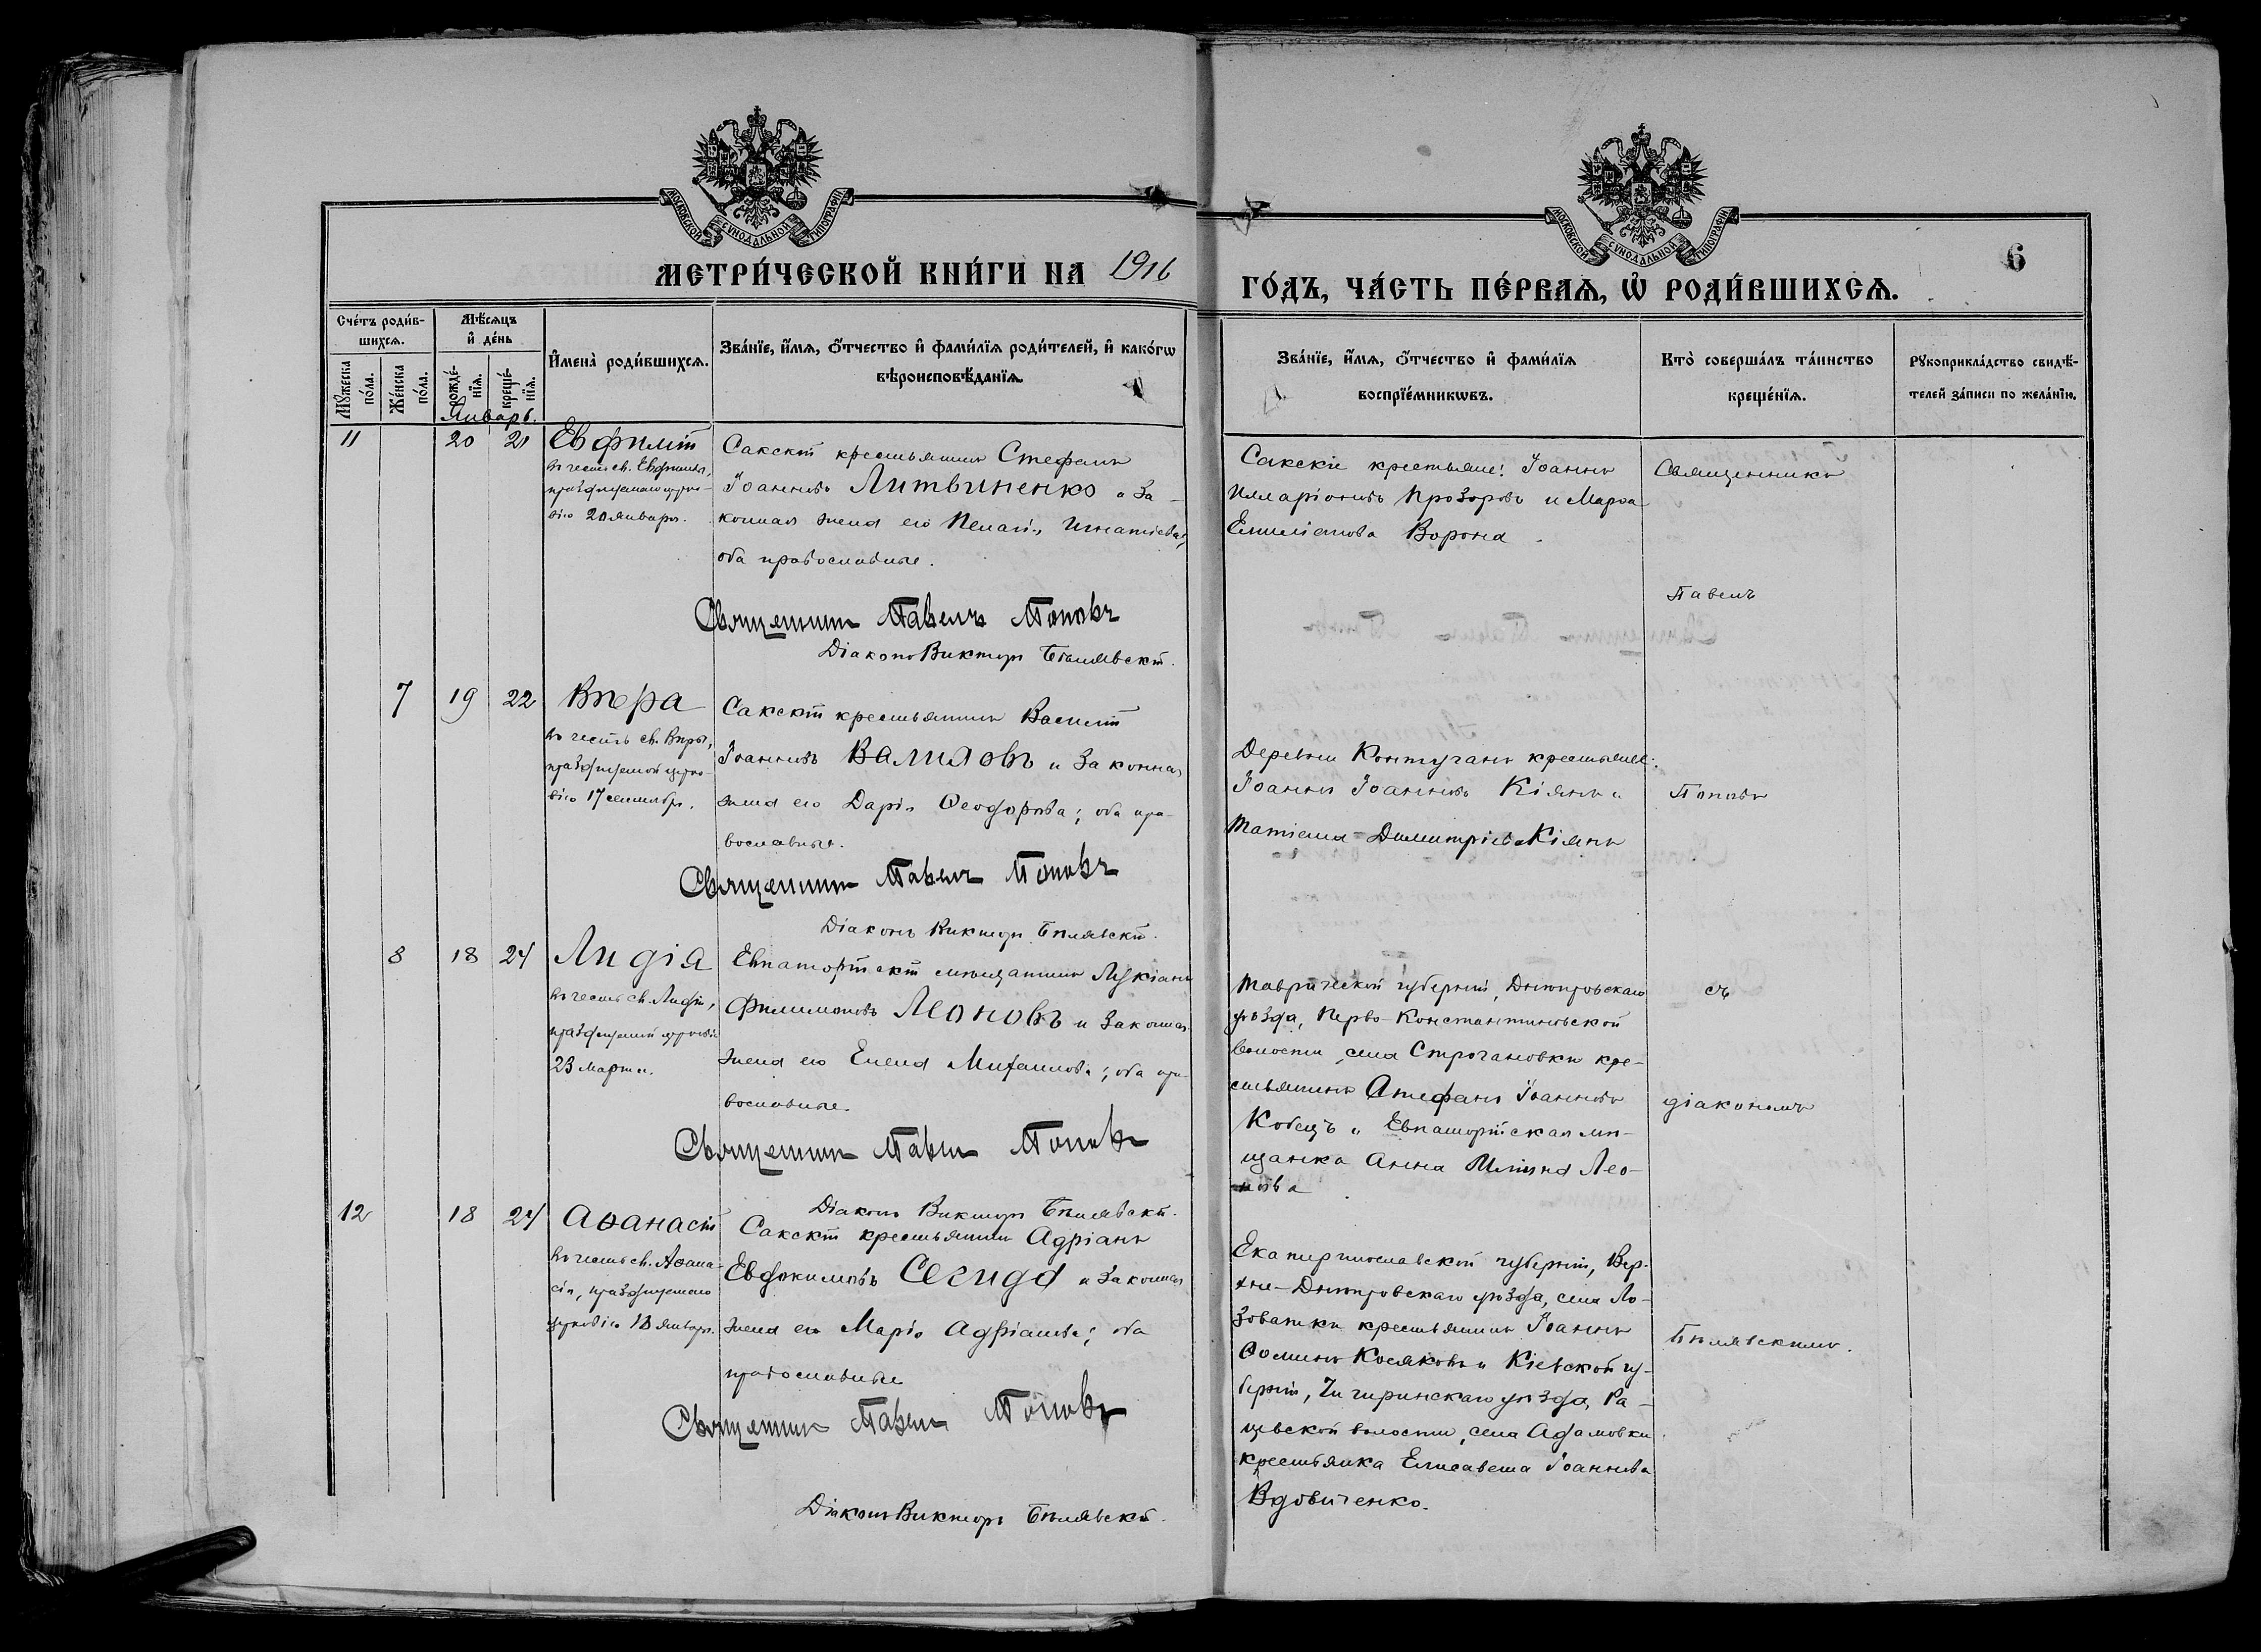 МОСКОВСКОЙ СѴНОДАЛЬНОЙ ТИПОГРАФІИ
МОСКОВСКОЙ СѴНОДАЛЬНОЙ ТИПОГРАФІИ
6
МЕТРИ́ЧЕСКОЙ КНИ́ГИ НА 1916
ГО́ДЪ, ЧА́СТЬ ПЕ́РВАѦ, Ѡ҆ РОДИ́ВШИХСѦ.
Сче́тъ роди́в-
шихсѧ.
Мѣ́сѧцъ
и҆ де́нь
Мꙋ́жеска
по́ла.
Же́нска
по́ла.
рожде́-
нїѧ.
креще́-
нїѧ.
И҆мена̀ роди́вшихсѧ.
Зва́нїе, и҆́мѧ, ѻ҆́тчество и҆ фами́лїѧ роди́телей, и҆ како́гѡ
вѣроисповѣ́данїѧ.
Зва́нїе, и҆́мѧ, ѻ҆́тчество и҆ фами́лїѧ
воспрїе́мникѡвъ.
Кто̀ соверша́лъ та́инство
креще́нїѧ.
Рꙋкоприкла́дство свидѣ́-
телей за́писи по жела́нїю.
Январь.
11 20 21 Евфимій
въ честь св. Евфимія,
празднуемаго церко-
вію 20 января.
Сакскій крестьянинъ Стефанъ
Іоанновъ Литвиненко и за-
конная жена его Пелагія Игнатіева;
оба православные.
Священникъ Павелъ Поповъ
Діаконъ Викторъ Бѣлявскій.
Сакскіе крестьяне: Іоаннъ
Илларіоновъ Прозоровъ и Марѳа
Емиліанова Ворона.
Священникъ
Павелъ
7 19 22 Вѣра
въ честь св. Вѣры,
празднуемой церко-
вію 17 сентября.
Сакскій крестьянинъ Василій
Іоанновъ Валиловъ и законная
жена его Дарія Ѳеодорова; оба пра-
вославные.
Священникъ Павелъ Поповъ
Діаконъ Викторъ Бѣлявскій.
Деревни Контуганъ крестьяне:
Іоаннъ Іоанновъ Кіянъ и
Татіана Димитріева Кіянъ
Поповъ
8 18 24 Лидія
въ честь св. Лидіи,
празднуемой церковію
23 марта.
Евпаторійскій мѣщанинъ Лукіанъ
Филимоновъ Леоновъ и законная
жена его Елена Михаилова; оба пра-
вославные.
Священникъ Павелъ Поповъ
Діаконъ Викторъ Бѣлявскій.
Таврической губерніи, Днѣпровскаго
уѣзда, Перво-Константиновской
волости, села Строгановки кре-
стьянинъ Стефанъ Іоанновъ
Кобецъ и Евпаторійская мѣ-
щанка Анна Ильина Лео-
нова
съ
діакономъ
12 18 24 Аѳанасій
въ честь св. Аѳана-
сія, празднуемаго
церковію 18 января.
Сакскій крестьянинъ Адріанъ
Евдокимовъ Сегида и законная
жена его Марія Адріанова; оба
православные
Священникъ Павелъ Поповъ
Діаконъ Викторъ Бѣлявскій.
Екатеринославской губерніи, Вер-
хне-Днѣпровскаго уѣзда, села Ло-
зоватки крестьянинъ Іоаннъ
Ѳоминъ Косяковъ и Кіевской гу-
берніи, Чигиринскаго уѣзда, Ра-
цевской волости, села Адамовки
крестьянка Елисавета Іоаннова
Вдовиченко.
Бѣлявскимъ.